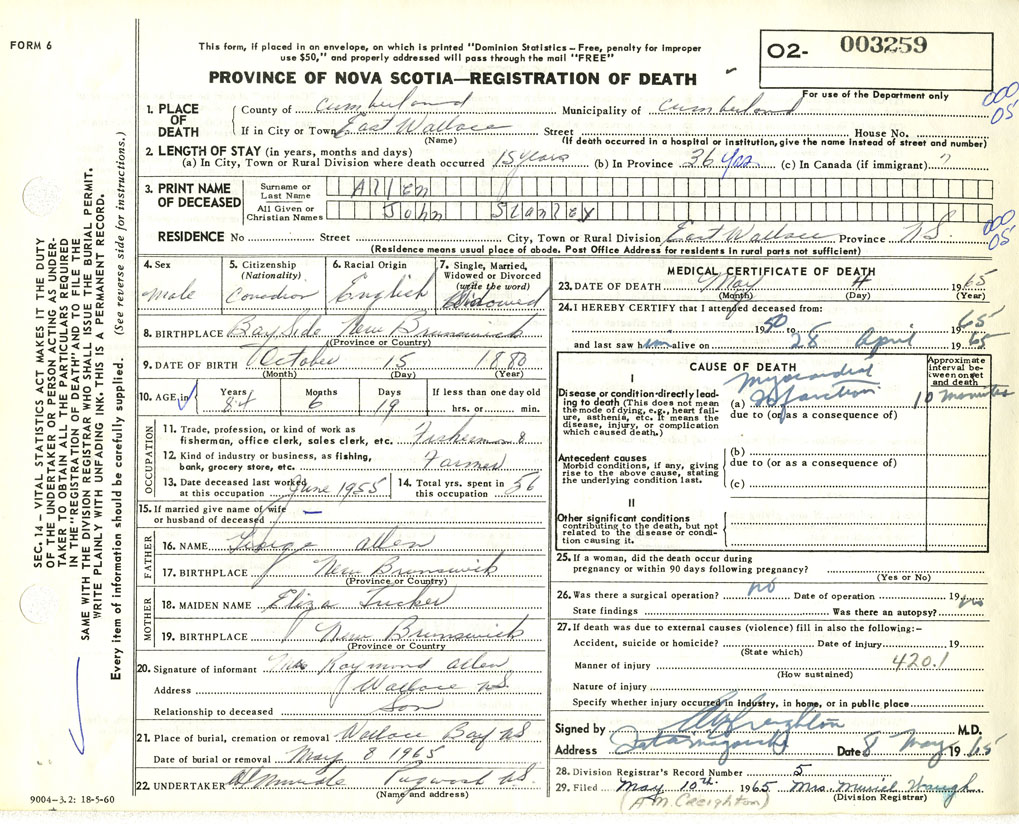 FORM 6
This form, if placed in an envelope, on which is printed "Dominion Statistics – Free, penalty for improper
use $50," and properly addressed will pass through the mail "FREE"
O2- 003259
For use of the Department only
PROVINCE OF NOVA SCOTIA—REGISTRATION OF DEATH
000
05
1. PLACE OF DEATH County of Cumberland Municipality of Cumberland
If in City or Town East Wallace Street House No.
(Name) (If death occurred in a hospital or institution, give the name instead of street and number)
2. LENGTH OF STAY (in years, months and days)
(a) In City, Town or Rural Division where death occurred 15 years (b) In Province 36 yrs (c) In Canada (if immigrant)
3. PRINT NAME OF DECEASED
Surname or Last Name Allen
All Given or Christian Names John Stanley
000
05
RESIDENCE No Street City, Town or Rural Division East Wallace Province N.S.
(Residence means usual place of abode. Post Office Address for residents in rural parts not sufficient)
4. Sex Male
5. Citizenship (Nationality) Canadian
6. Racial Origin English
7. Single, Married, Widowed or Divorced (write the word) Widowed
8. BIRTHPLACE Bay Side New Brunswick
(Province or Country)
9. DATE OF BIRTH October 15 1880
(Month) (Day) (Year)
10. AGE in Years 84 Months 6 Days 19 If less than one day old hrs. or min.
OCCUPATION
11. Trade, profession, or kind of work as fisherman, office clerk, sales clerk, etc. Fisherman &
12. Kind of industry or business, as fishing, bank, grocery store, etc. Farmer
13. Date deceased last worked at this occupation June 1955
14. Total yrs. spent in this occupation 56
15. If married give name of wife or husband of deceased –
FATHER
16. NAME George Allen
17. BIRTHPLACE New Brunswick
(Province or Country)
MOTHER
18. MAIDEN NAME Eliza Tucker
19. BIRTHPLACE New Brunswick
(Province or Country
20. Signature of informant Mrs Raymond Allen
Address Wallace N.S.
Relationship to deceased Son
21. Place of burial, cremation or removal Wallace Bay N.S
Date of burial or removal May 8 1965
22. UNDERTAKER Pugwash N.S.
(Name and address)
MEDICAL CERTIFICATE OF DEATH
23. DATE OF DEATH May 4 1965
(Month) (Day) (Year)
24. I HEREBY CERTIFY that I attended deceased from:
1950 to 1965
and last saw him alive on 28 April 1965
CAUSE OF DEATH
Approximate interval between onset and death
I
Disease or condition directly leading to death (This does not mean the mode of dying, e.g., heart failure, asthenia, etc. It means the disease, injury, or complication which caused death.)
(a) Myocardial Infarction 10 minutes
due to (or as a consequence of)
Antecedent causes
Morbid conditions, if any, giving rise to the above cause, stating the underlying condition last.
(b)
due to (or as a consequence of)
(c)
II
Other significant conditions
contributing to the death, but not related to the disease or condition causing it.
25. If a woman, did the death occur during
pregnancy or within 90 days following pregnancy?
(Yes or No)
26. Was there a surgical operation? no Date of operation 19
State findings Was there an autopsy?
27. If death was due to external causes (violence) fill in also the following:–
Accident, suicide or homicide? Date of injury 19
(State which)
Manner of injury 420.1
(How sustained)
Nature of injury
Specify whether injury occurred in industry, in home, or in public place
Signed by Creighton M.D.
Address Tatamagouche Date 8 May 1965
28. Division Registrar's Record Number 5
29. Filed May 10th 1965 Mrs. Muriel Waugh
(A.M. Creighton) (Division Registrar)
SEC. 14 – VITAL STATISTICS ACT MAKES IT THE DUTY
OF THE UNDERTAKER OR PERSON ACTING AS UNDER-
TAKER TO OBTAIN ALL THE PARTICULARS REQUIRED
IN THE "REGISTRATION OF DEATH" AND TO FILE THE
SAME WITH THE DIVISION REGISTRAR WHO SHALL ISSUE THE BURIAL PERMIT.
WRITE PLAINLY WITH UNFADING INK. THIS IS A PERMANENT RECORD.
Every item of information should be carefully supplied. (See reverse side for instructions.)
9004–3.2: 18-5-60